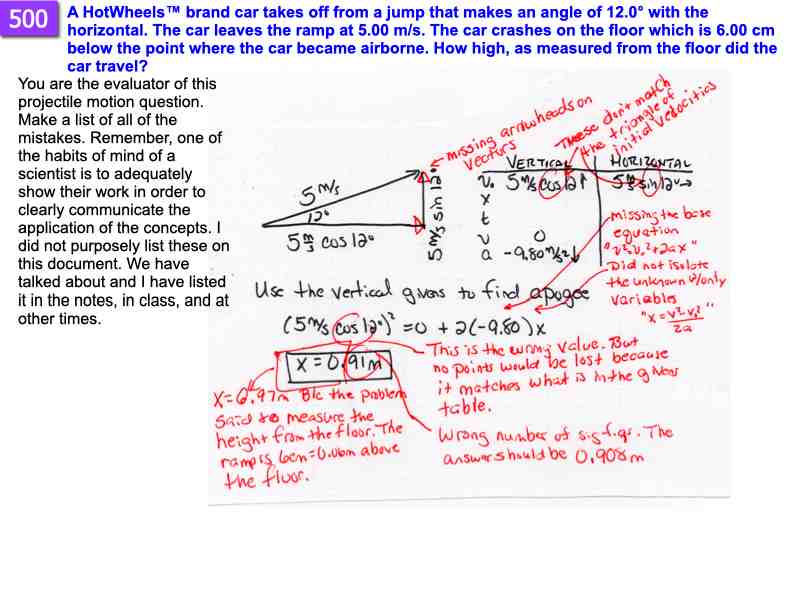 500
A HotWheels™ brand car takes off from a jump that makes an angle of 12.0° with the
horizontal. The car leaves the ramp at 5.00 m/s. The car crashes on the floor which is 6.00 cm
below the point where the car became airborne. How high, as measured from the floor did the
car travel?
You are the evaluator of this
projectile motion question.
Make a list of all of the
mistakes. Remember, one of
the habits of mind of a
scientist is to adequately
show their work in order to
clearly communicate the
application of the concepts. I
did not purposely list these on
this document. We have
talked about and I have listed
it in the notes, in class, and at
other times.
missing arrowheads on
vectors
These don't match
the triangle of
initial velocities
5 m/s
12°
5 m/s cos 12°
5 m/s sin 12°
VERTICAL HORIZONTAL
v₀ 5 m/s cos 12↑ 5 m/s sin 12°→
x
t
v 0
a -9.80 m/s²↓
missing the base
equation
"v²=v₀²+2ax"
Did not isolate
the unknown w/only
variables
"x = v²-v₀² / 2a"
Use the vertical givens to find apogee
(5 m/s cos 12°)² = 0 + 2(-9.80)x
x = 0.91m
This is the wrong value. But
no points would be lost because
it matches what is in the givens
table.
x=0.97m B/c the problem
said to measure the
height from the floor. The
ramp is 6cm=0.06m above
the floor.
Wrong number of sig figs. The
answer should be 0.908m